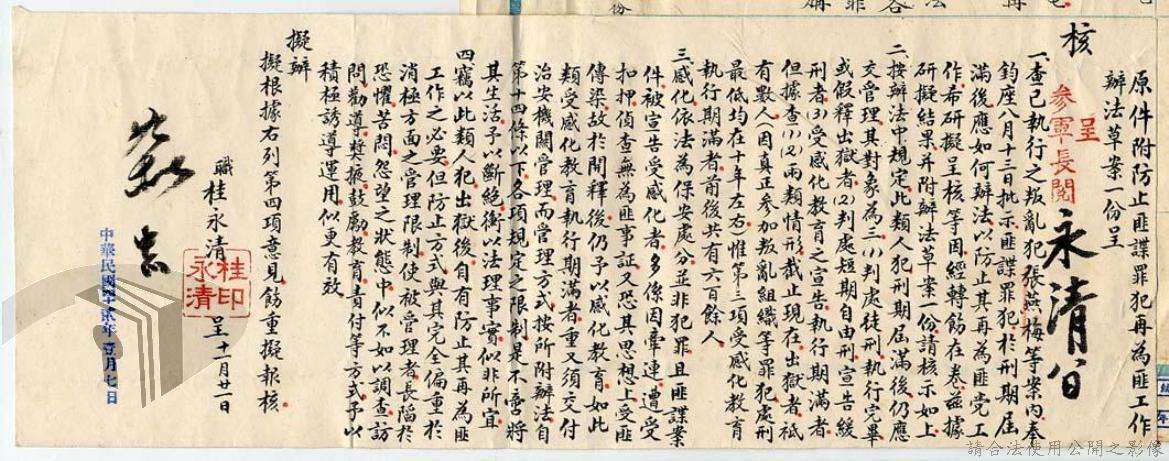 原件附防止匪諜罪犯再為匪工作
辦法草案一份呈
核
呈
參軍長閱
永清 公
一查已執行之叛亂犯張燕梅等案內奉
鈞座八月十三日批示匪諜罪犯於刑期屆
滿後應如何辦法以防止其再為匪黨工
作希研擬呈核等因經轉飭在卷茲據
研擬結果并附辦法草案一份請核示如上
二按辦法中規定此類人犯刑期屆滿後仍應
交管理其對象為三(1)判處徒刑執行完畢
或假釋出獄者(2)判處短期自由刑宣告緩
刑者(3)受感化教育之宣告執行期滿者
但據查(1)(2)兩類情形截止現在出獄者祗
有數人(因真正參加叛亂組織等罪犯處刑
最低均在十年左右)惟第三項受感化教育
執行期滿者前後共有六百餘人
三感化依法為保安處分並非犯罪且匪諜案
件被宣告受感化者多係因牽連遭受
扣押偵查無為匪事証又恐其思想上受匪
傳染故於開釋後仍予以感化教育如此
類受感化教育執行期滿者重又須交付
治安機關管理而管理方式按所附辦法自
第十四條以下各項規定之限制是不啻將
其生活予以斷絕衡以法理事實似非所宜
四竊以此類人犯出獄後自有防止其再為匪
工作之必要但防止方式與其完全偏重於
消極方面之管理限制使被管理者長陷於
恐懼苦悶怨望之狀態中似不如以調查訪
問勸導獎掖鼓勵教育責付等方式予以
積極誘導運用似更有效
擬辦
擬根據右列第四項意見飭重擬報核
職桂永清
桂永清印
呈 十二月廿一日
中華民國肆拾貳年壹月七日
請合法使用公開之影像